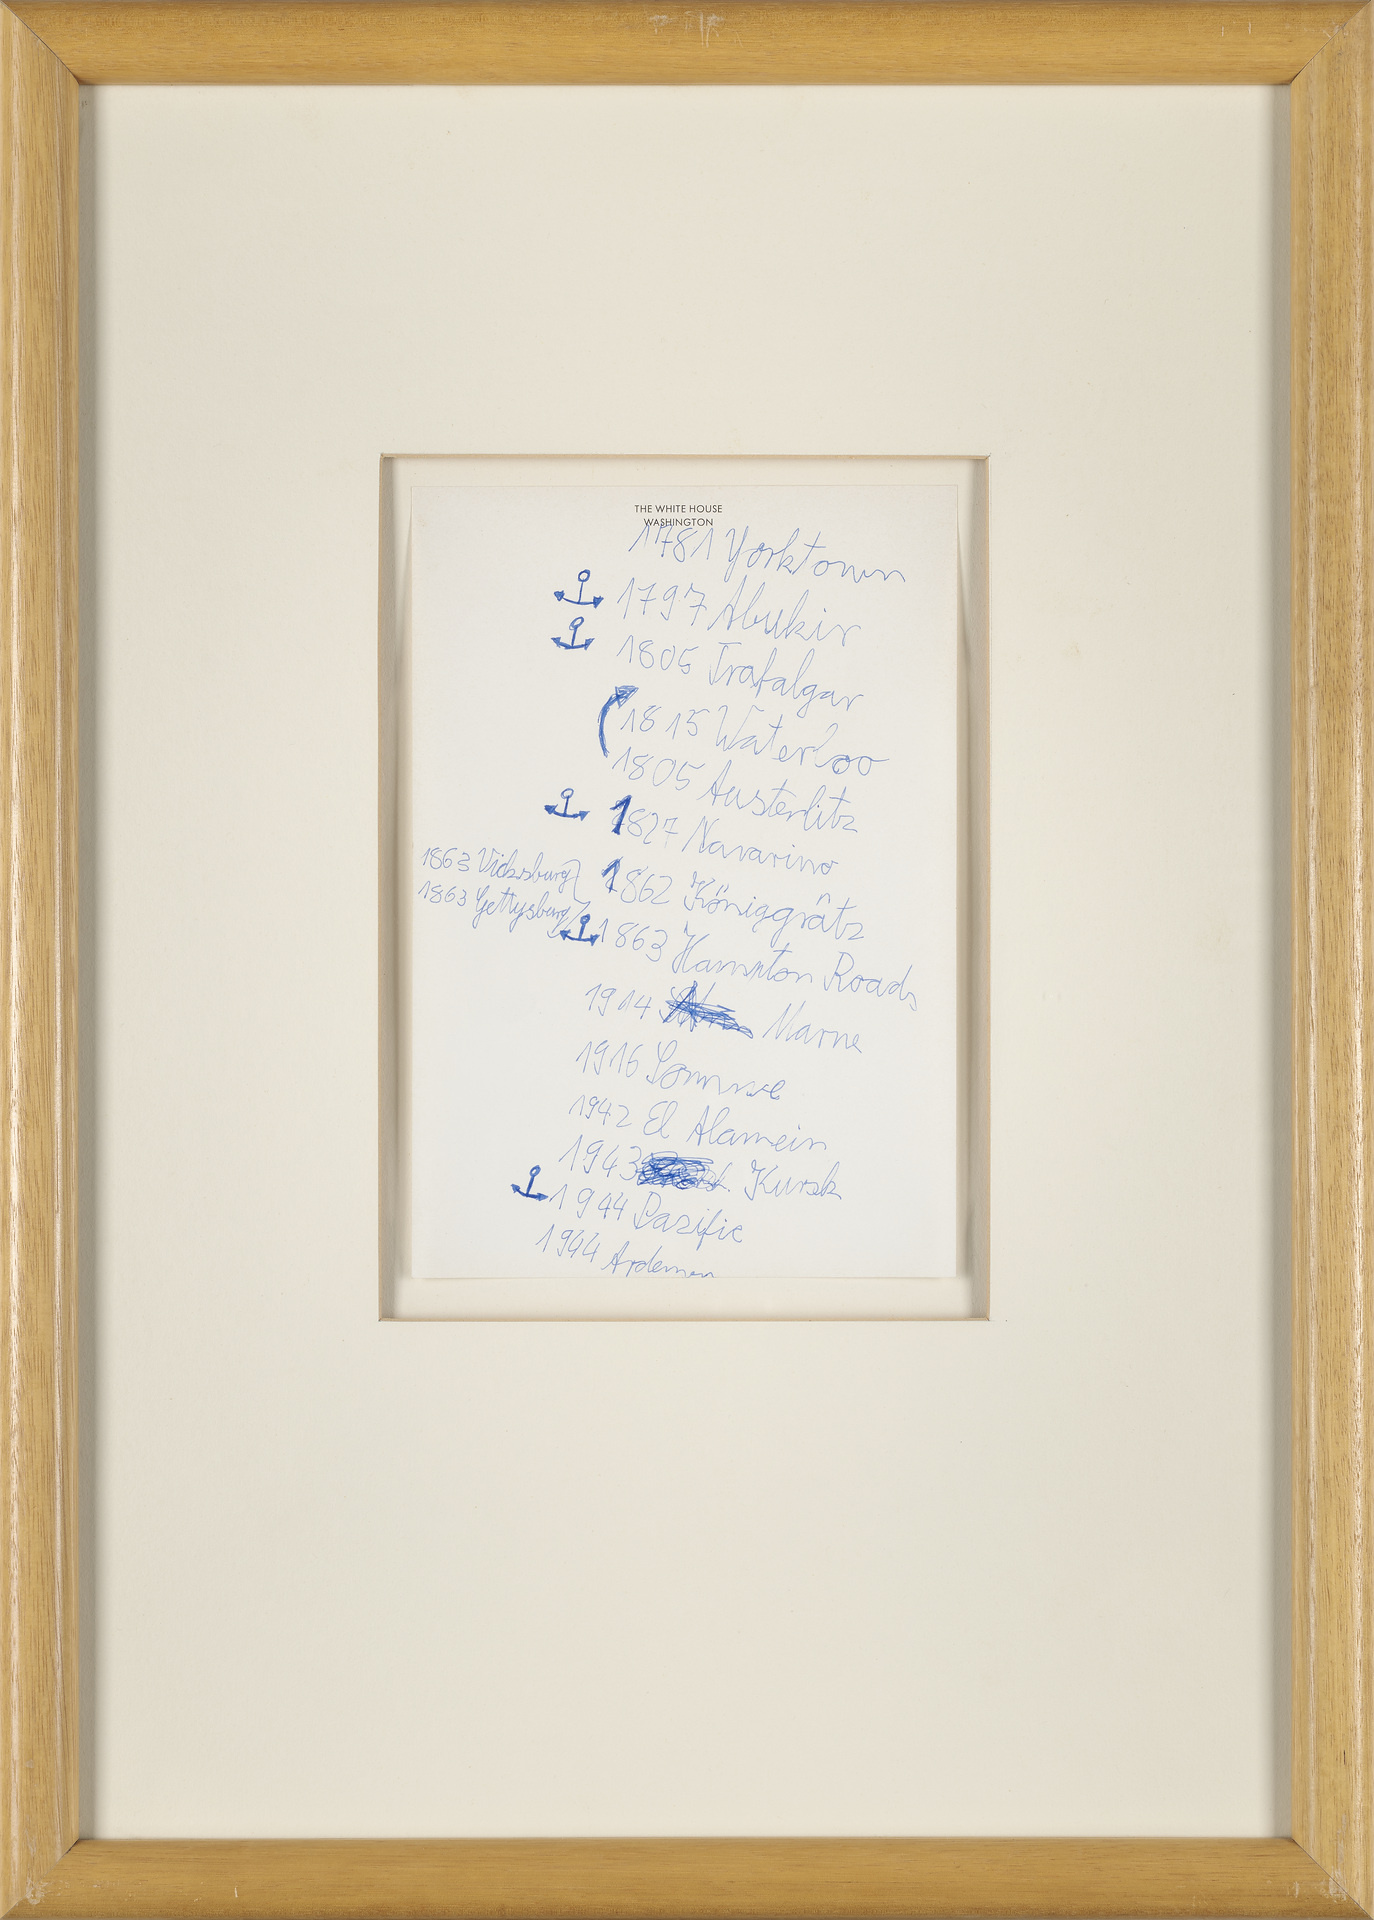 THE WHITE HOUSE
WASHINGTON
1781 Yorktown
1797 Abukir
1805 Trafalgar
1815 Waterloo
1805 Austerlitz
1827 Navarino
1863 Vicksburg
1863 Gettysburg
1862 Königgrätz
1863 Hampton Roads
1914 Marne
1916 Somme
1942 El Alamein
1943 Kursk
1944 Pazific
1944 Ardennen